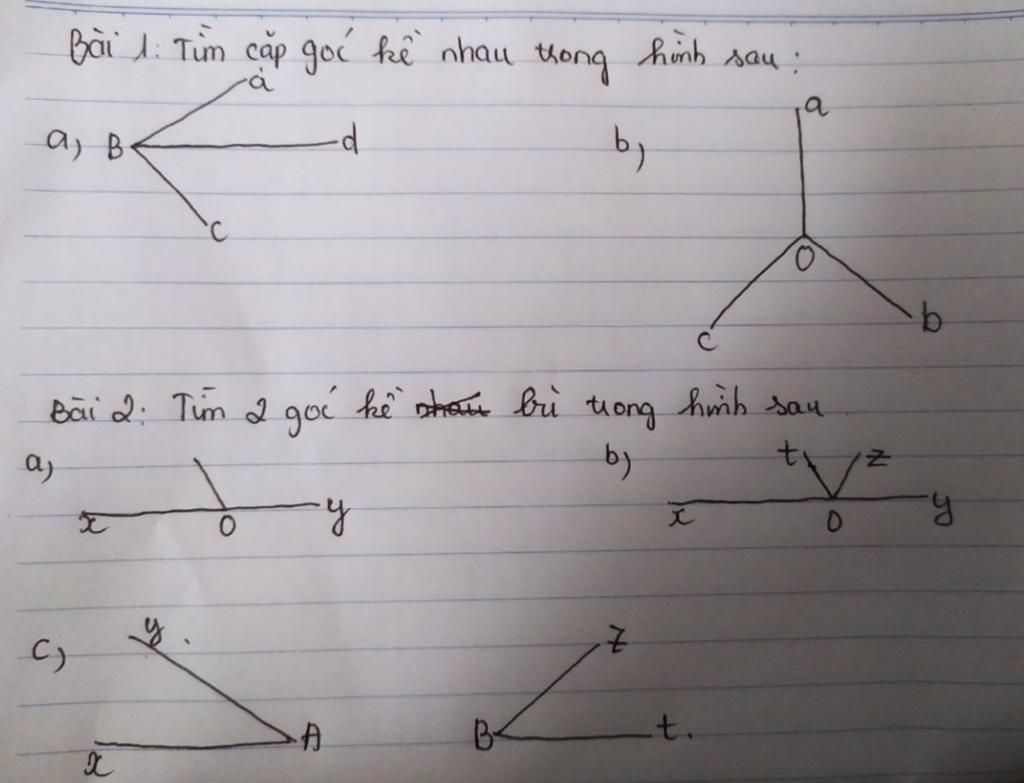 Bài 1: Tìm cặp góc kề nhau trong hình sau:
a) B a d c
b) a O c b
Bài 2: Tìm 2 góc kề nhau bù trong hình sau
a) x O y
b) t z x O y
c) y x A B z t.